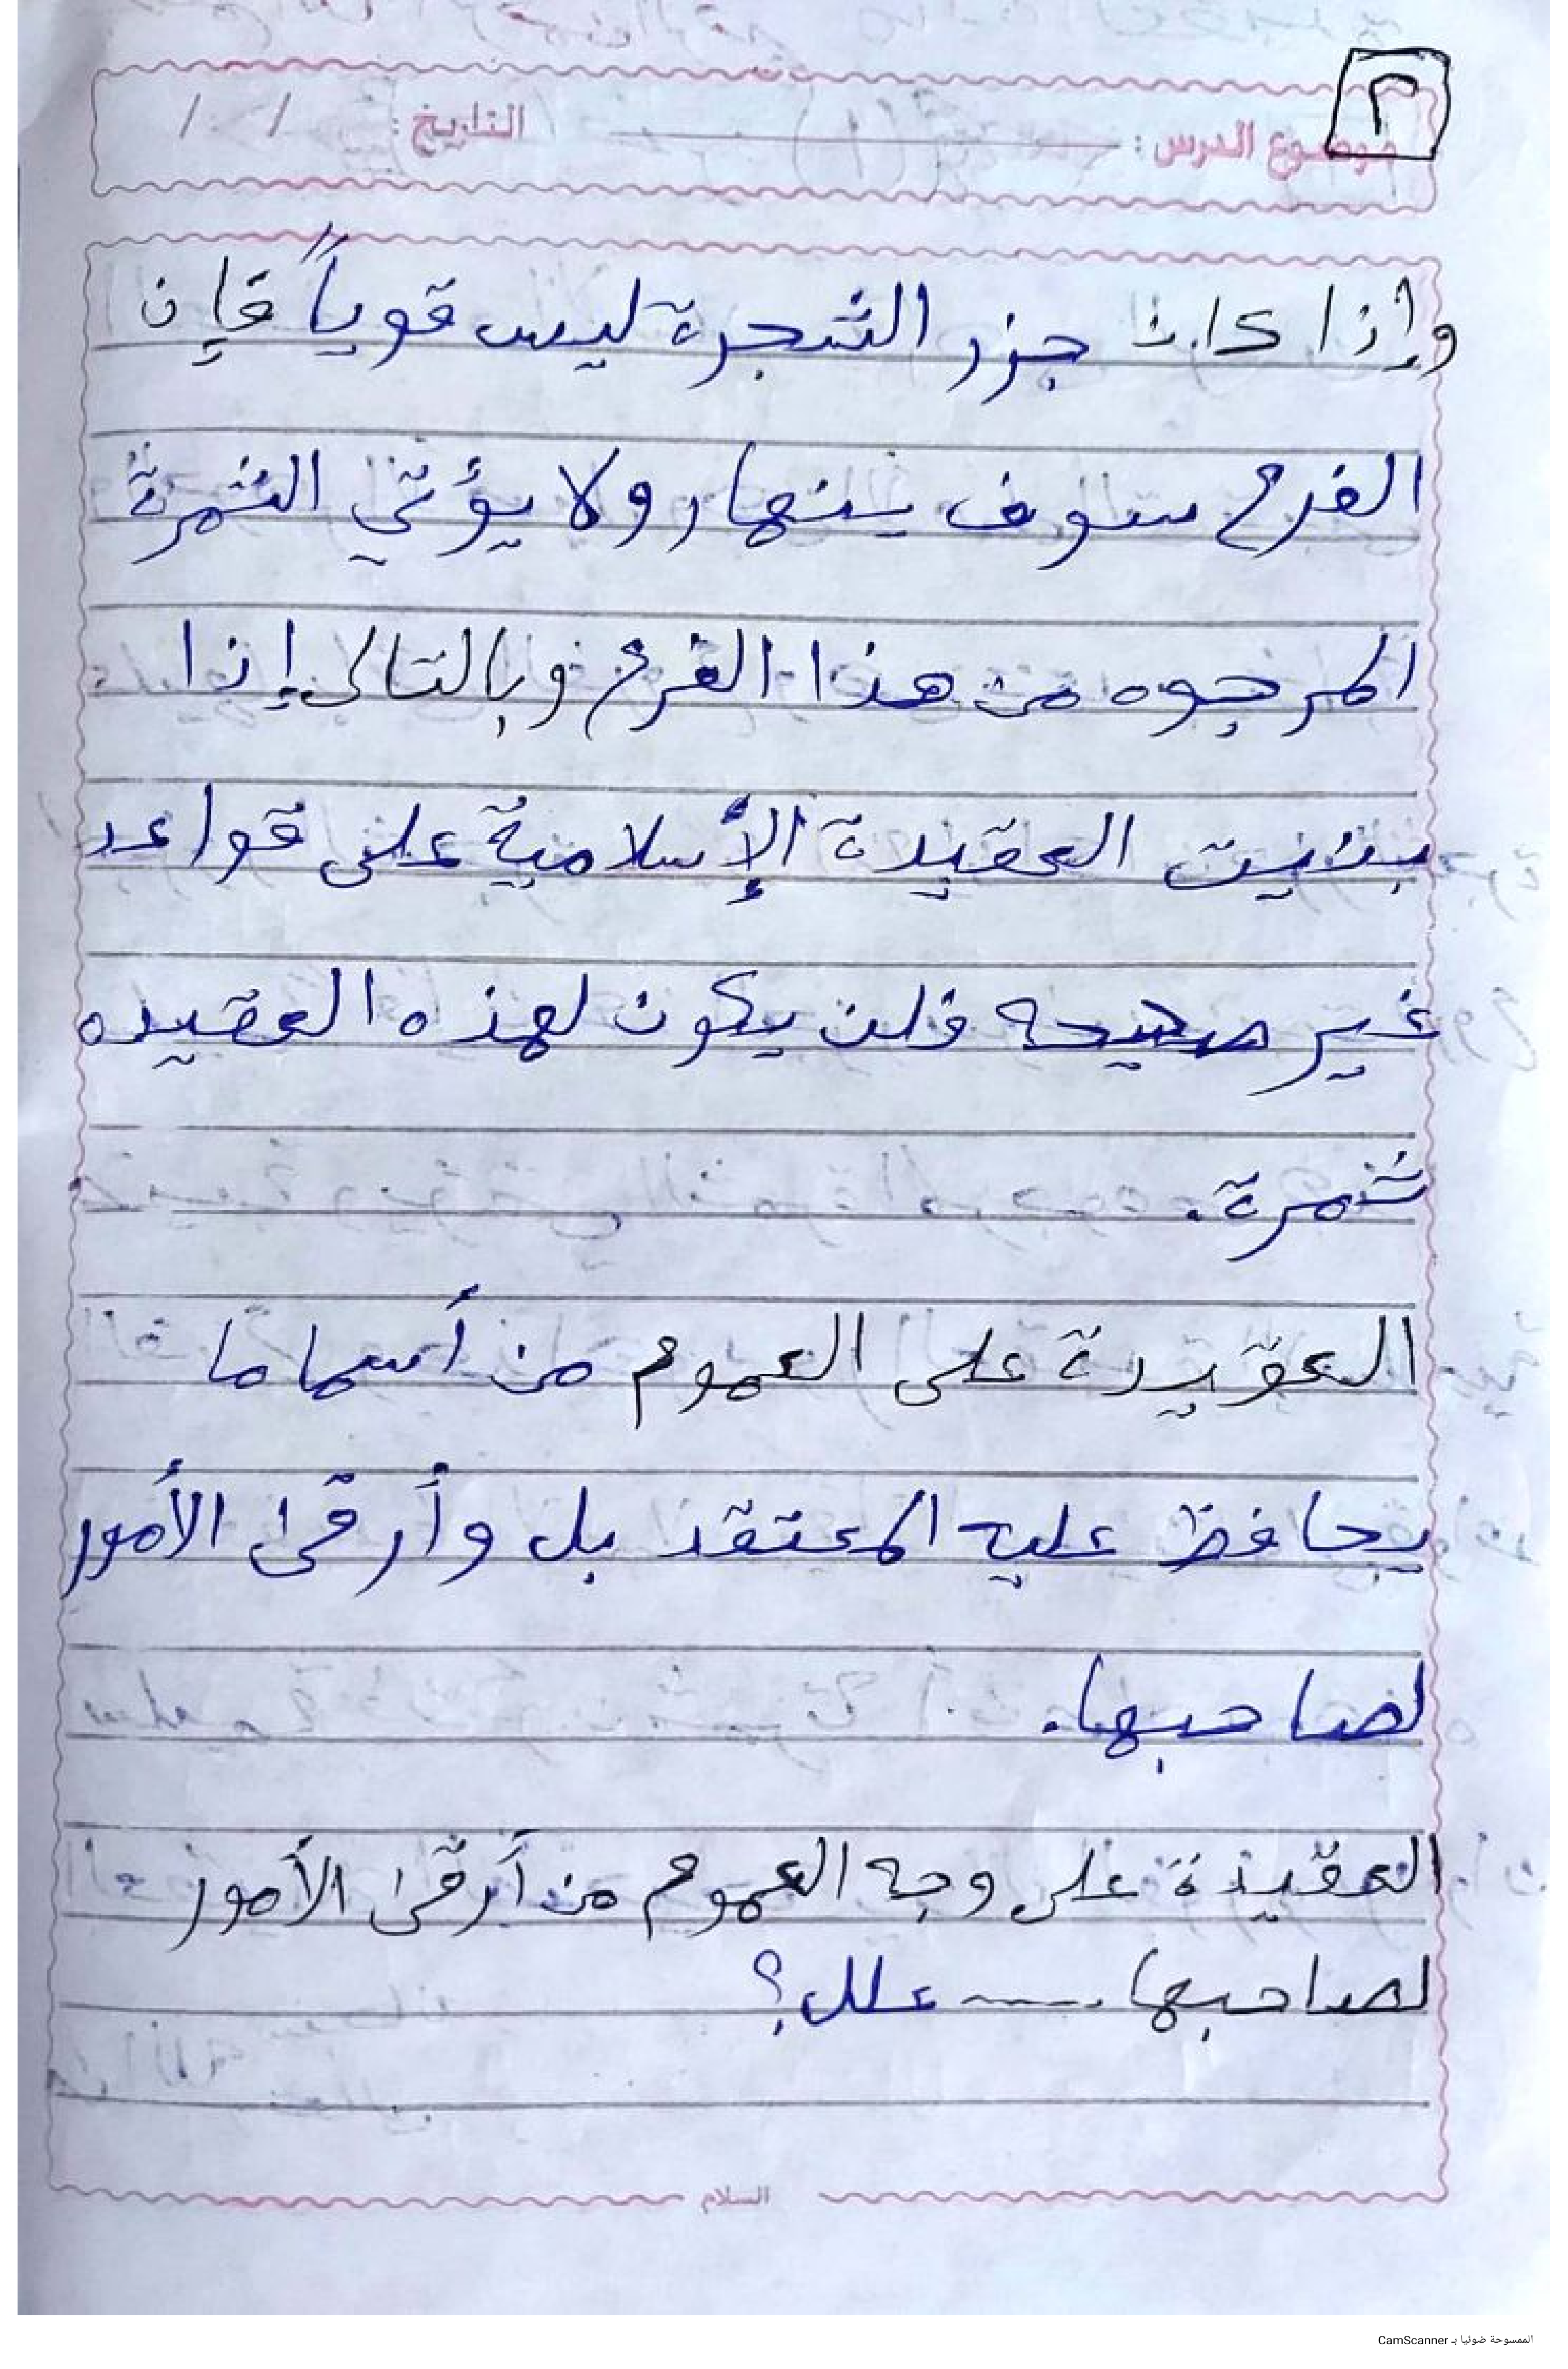 ٢
موضوع الدرس : التاريخ : / /
وإذا كان جزر الشجرة ليس قوياً فإن
الفرع سوف ينهار ولا يؤتي الثمرة
المرجوه من هذا الفرع وبالتالى إذا
بنيت العقيدة الإسلامية على قواعد
غير صحيحه فلن يكون لهذه العقيده
ثمرة.
العقيدة على العموم من أسما ما
يحافظ عليه المعتقد بل وأرقى الأمور
لصاحبها.
العقيدة على وجه العموم من أرقى الأمور
لصاحبها --- علل؟
السلام
الممسوحة ضوئيا بـ CamScanner